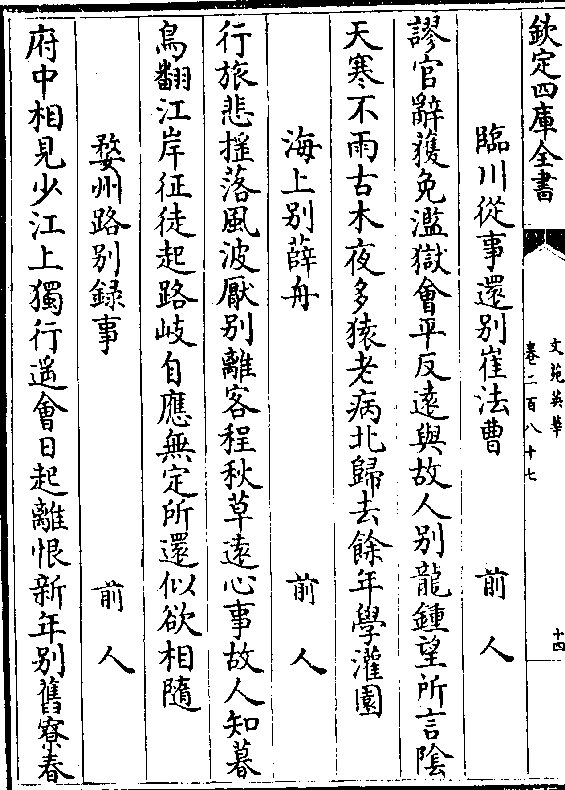 欽定四庫全書
文苑英華
卷二百八十七
十四
臨川從事還别崔法曹 前人
謬官辭獲免濫獄會平反遠與故人别龍鍾望所言陰
天寒不雨古木夜多猿老病北歸去餘年學灌園
海上别薛舟 前人
行旅悲揺落風波厭别離客程秋草遠心事故人知暮
鳥翻江岸征徒起路岐自應無定所還似欲相隨
婺州路别録事 前人
府中相見少江上獨行遥會日起離恨新年别舊寮春